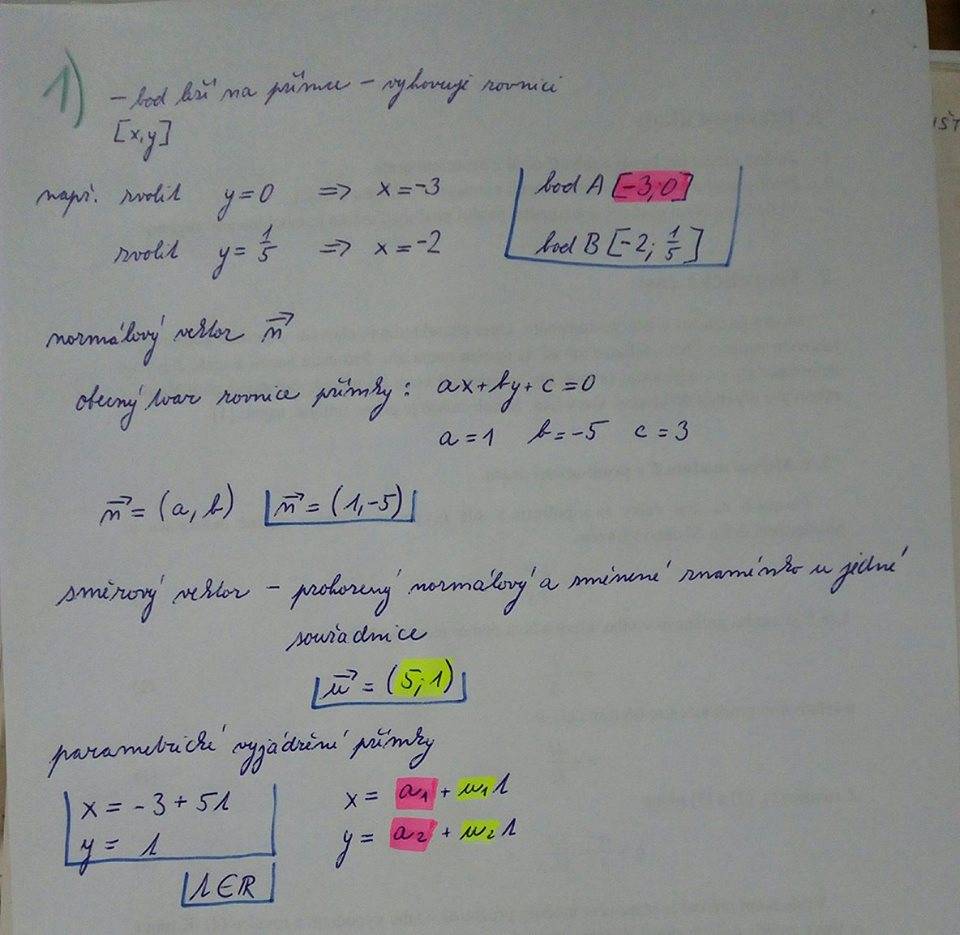 1)
- bod leží na přímce - vyhovuje rovnici
[x,y]
např. zvolit y = 0 => x = -3
bod A [-3;0]
zvolit y = 1/5 => x = -2
bod B [-2; 1/5]
normálový vektor n→
obecný tvar rovnice přímky: ax + by + c = 0
a = 1 b = -5 c = 3
n→ = (a, b) n→ = (1,-5)
směrový vektor - prohozený normálový a směnené znaménko u jedné
souřadnice
u→ = (5;1)
parametrické vyjádření přímky
x = -3 + 5t
x = a₁ + u₁t
y = t
y = a₂ + u₂t
t ∈ R
IŠT